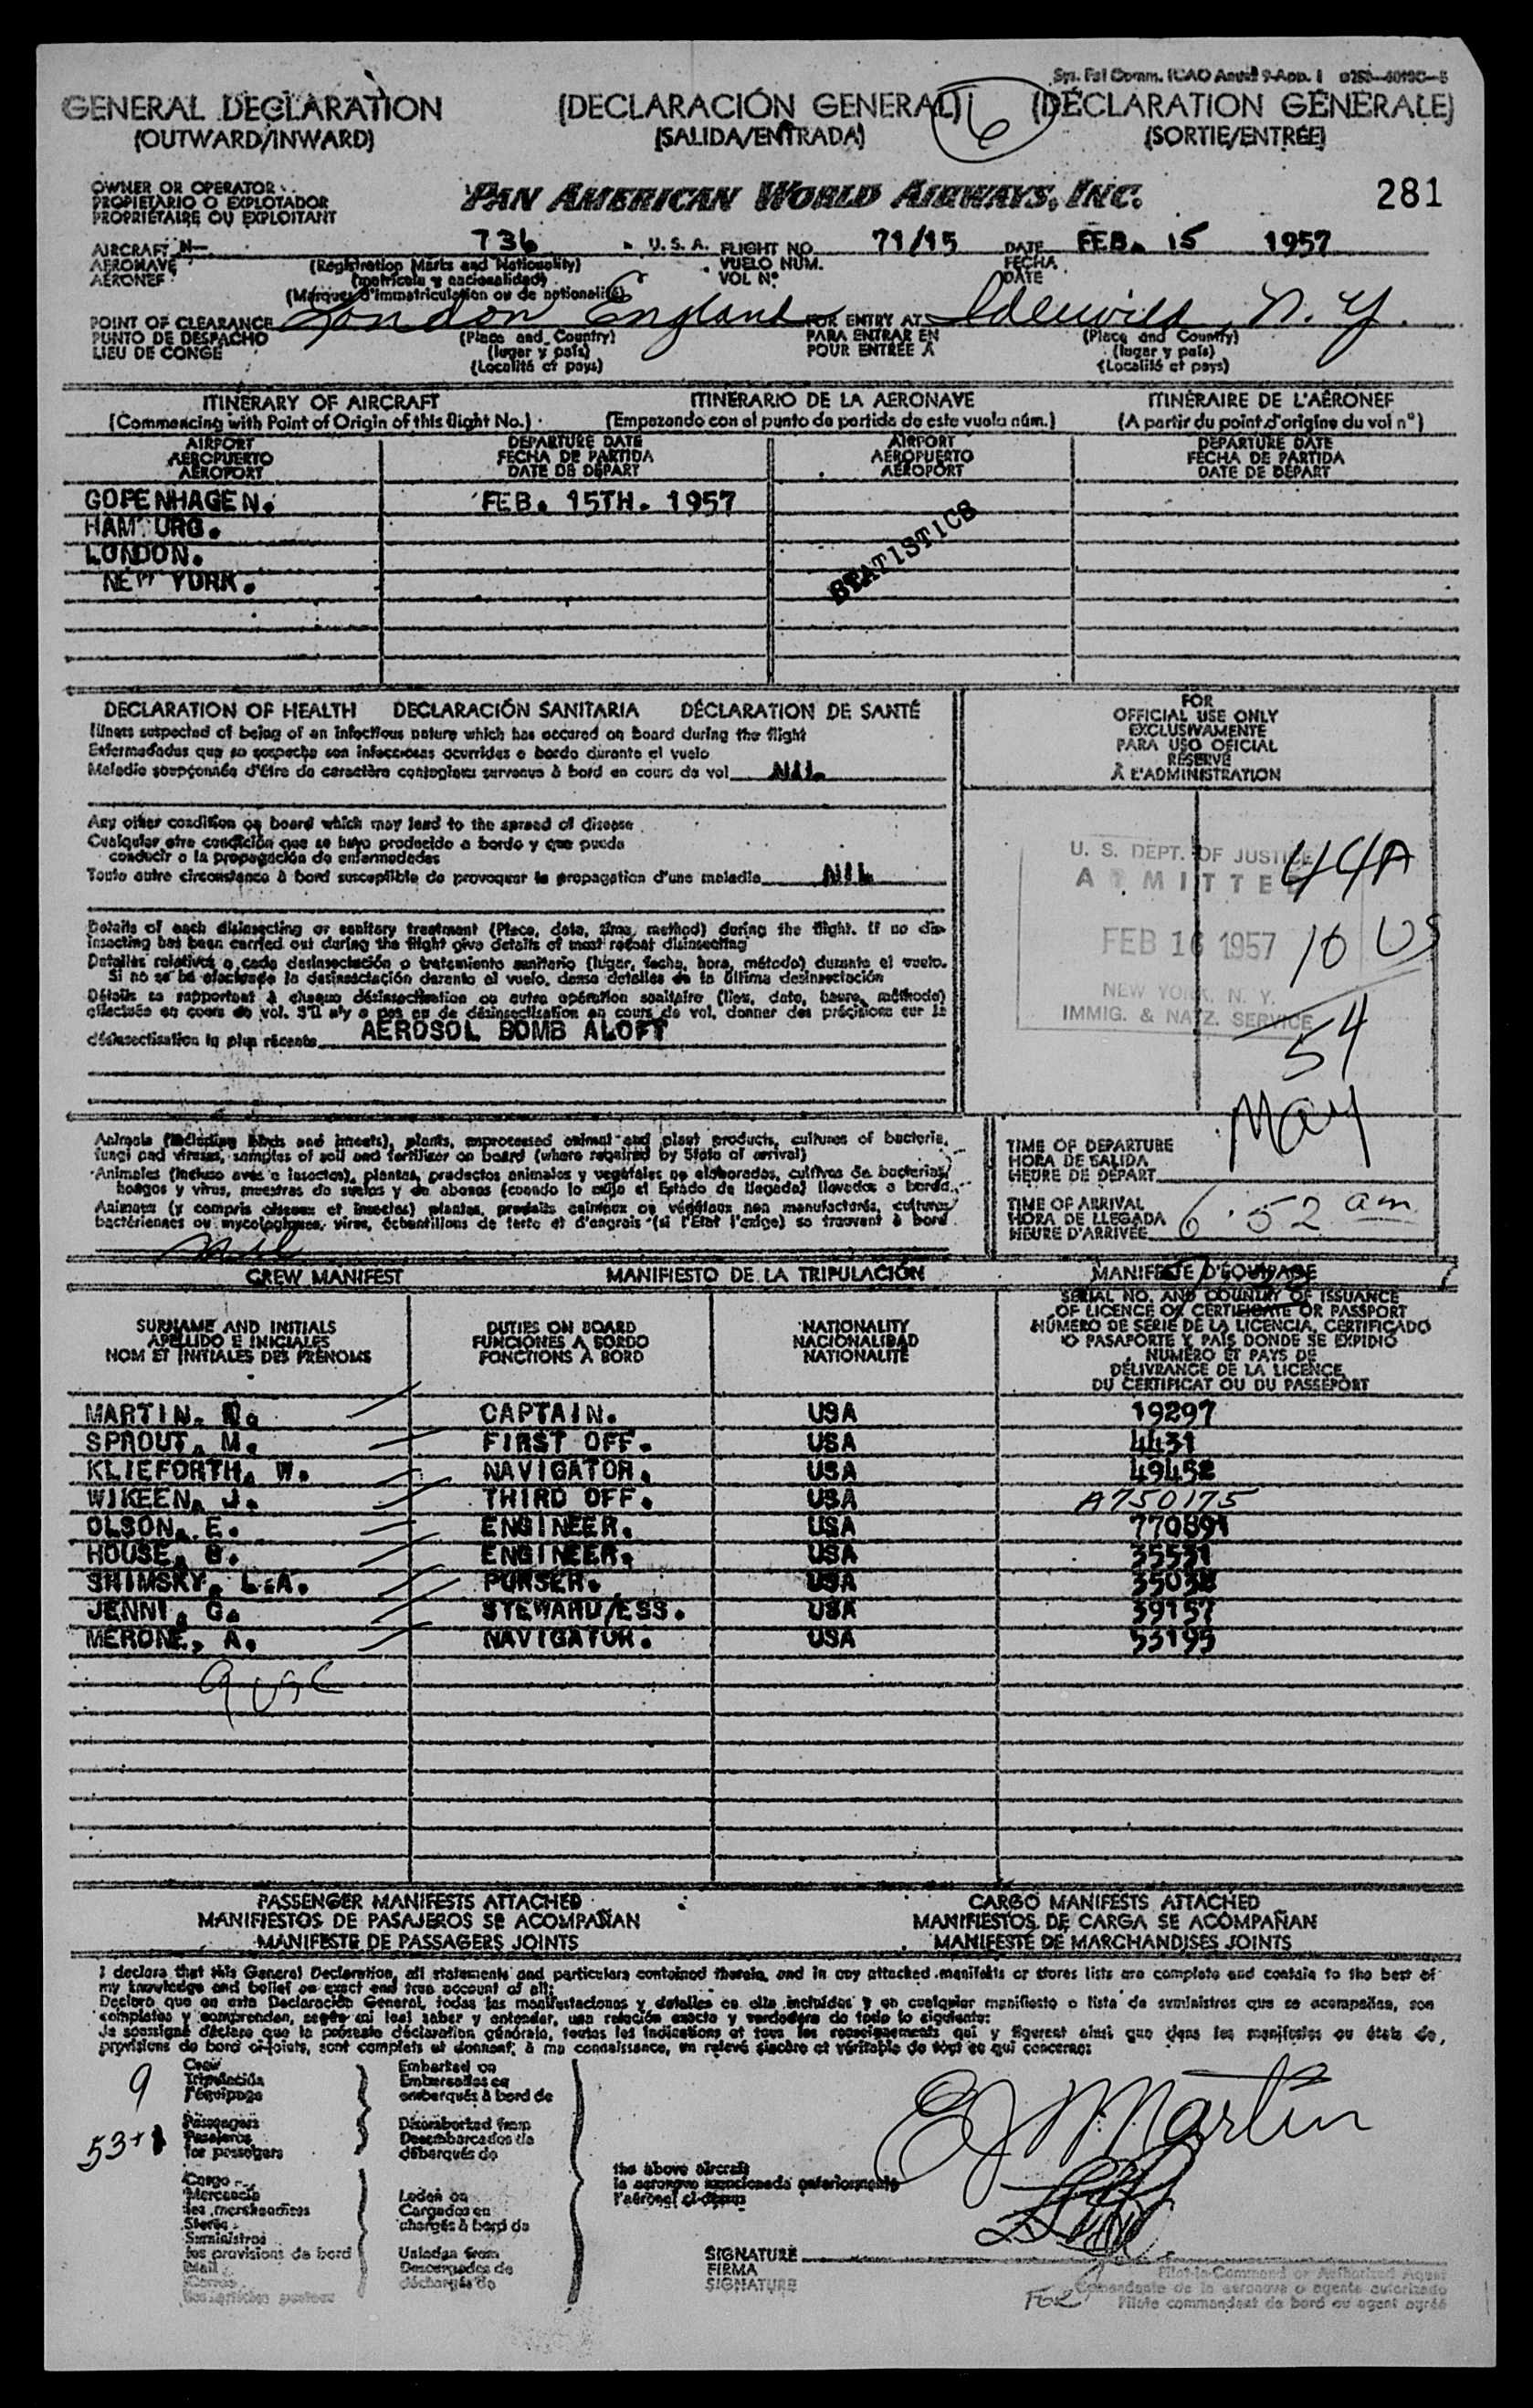 Sys. Fal Comm. ICAO Annex 9-App. 1
GENERAL DECLARATION (DECLARACIÓN GENERAL) (DÉCLARATION GÉNÉRALE)
6
(OUTWARD/INWARD) (SALIDA/ENTRADA) (SORTIE/ENTRÉE)
OWNER OR OPERATOR
PROPIETARIO O EXPLOTADOR
PROPRIÉTAIRE OU EXPLOITANT
PAN AMERICAN WORLD AIRWAYS, INC.
281
AIRCRAFT N— 736 U. S. A. FLIGHT NO. 71/15 DATE FEB. 15 1957
AERONAVE (Registration Marks and Nationality) VUELO NUM. FECHA
AÉRONEF (matrícula y nacionalidad) VOL Nº DATE
(Marques d'immatriculation ou de nationalité)
POINT OF CLEARANCE London England FOR ENTRY AT Idlewild, N. Y.
PUNTO DE DESPACHO (Place and Country) PARA ENTRAR EN (Place and Country)
LIEU DE CONGÉ (lugar y país) POUR ENTRÉE À (lugar y país)
(Localité et pays) (Localité et pays)
ITINERARY OF AIRCRAFT ITINERARIO DE LA AERONAVE ITINÉRAIRE DE L'AÉRONEF
(Commencing with Point of Origin of this flight No.) (Empezando con el punto de partida de este vuelo núm.) (A partir du point d'origine du vol nº)
AIRPORT DEPARTURE DATE AIRPORT DEPARTURE DATE
AEROPUERTO FECHA DE PARTIDA AEROPUERTO FECHA DE PARTIDA
AÉROPORT DATE DE DÉPART AÉROPORT DATE DE DÉPART
COPENHAGEN. FEB. 15TH. 1957
HAMBURG.
LONDON.
NEW YORK.
STATISTICS
DECLARATION OF HEALTH DECLARACIÓN SANITARIA DÉCLARATION DE SANTÉ
Illness suspected of being of an infectious nature which has occured on board during the flight
Enfermedades que se sospecha son infecciosas ocurridas a bordo durante el vuelo
Maladie soupçonnée d'être de caractère contagieux survenue à bord en cours de vol NIL
Any other condition on board which may lead to the spread of disease
Cualquier otra condición que se haya producido a bordo y que pueda
conducir a la propagación de enfermedades
Toute autre circonstance à bord susceptible de provoquer la propagation d'une maladie NIL
Details of each disinsecting or sanitary treatment (Place, date, time, method) during the flight. If no dis-
insecting has been carried out during the flight give details of most recent disinsecting
Detalles relativos a cada desinsectación o tratamiento sanitario (lugar, fecha, hora, método) durante el vuelo.
Si no se ha efectuado la desinsectación durante el vuelo, dense detalles de la última desinsectación
Détails se rapportant à chaque désinsectisation ou autre opération sanitaire (lieu, date, heure, méthode)
effectuée en cours de vol. S'il n'y a pas eu de désinsectisation en cours de vol, donner des précisions sur la
désinsectisation la plus récente AEROSOL BOMB ALOFT
FOR
OFFICIAL USE ONLY
EXCLUSIVAMENTE
PARA USO OFICIAL
RÉSERVÉ
À L'ADMINISTRATION
U. S. DEPT. OF JUSTICE
ADMITTED
FEB 16 1957
NEW YORK, N. Y.
IMMIG. & NATZ. SERVICE
44A
10 US
54
May
Animals (including birds and insects), plants, unprocessed animal and plant products, cultures of bacteria,
fungi and viruses, samples of soil and fertilizer on board (where required by State of arrival)
Animales (incluso aves e insectos), plantas, productos animales y vegetales no elaborados, cultivos de bacterias
hongos y virus, muestras de suelos y de abonos (cuando lo exija el Estado de llegada) llevados a bordo.
Animaux (y compris oiseaux et insectes) plantes, produits animaux ou végétaux non manufacturés, cultures
bactériennes ou mycologiques, virus, échantillons de terre et d'engrais (si l'Etat l'exige) se trouvant à bord
nil
TIME OF DEPARTURE
HORA DE SALIDA
HEURE DE DÉPART
TIME OF ARRIVAL
HORA DE LLEGADA
HEURE D'ARRIVÉE 6:52 am
CREW MANIFEST MANIFIESTO DE LA TRIPULACIÓN MANIFESTE D'ÉQUIPAGE
SURNAME AND INITIALS DUTIES ON BOARD NATIONALITY SERIAL NO. AND COUNTRY OF ISSUANCE
APELLIDO E INICIALES FUNCIONES A BORDO NACIONALIDAD OF LICENCE OR CERTIFICATE OR PASSPORT
NOM ET INITIALES DES PRÉNOMS FONCTIONS À BORD NATIONALITÉ NÚMERO DE SERIE DE LA LICENCIA, CERTIFICADO
O PASAPORTE Y PAÍS DONDE SE EXPIDIÓ
NUMÉRO ET PAYS DE
DÉLIVRANCE DE LA LICENCE
DU CERTIFICAT OU DU PASSEPORT
MARTIN. CAPTAIN. USA 19297
SPROUT, M. FIRST OFF. USA 4431
KLIEFORTH, W. NAVIGATOR. USA 49452
WIKEEN, J. THIRD OFF. USA A750175
OLSON, E. ENGINEER. USA 770891
HOUSE, ENGINEER. USA 35531
SHIMSKY, L.A. PURSER. USA 35038
JENNI, G. STEWARD/ESS. USA 39157
MERONE, A. NAVIGATOR. USA 53195
9 USC
PASSENGER MANIFESTS ATTACHED CARGO MANIFESTS ATTACHED
MANIFIESTOS DE PASAJEROS SE ACOMPAÑAN MANIFIESTOS DE CARGA SE ACOMPAÑAN
MANIFESTE DE PASSAGERS JOINTS MANIFESTE DE MARCHANDISES JOINTS
I declare that this General Declaration, all statements and particulars contained therein, and in any attached manifests or stores lists are complete and contain to the best of
my knowledge and belief an exact and true account of all:
Declaro que en esta Declaración General, todas las manifestaciones y detalles en ella incluidos y en cualquier manifiesto o lista de suministros que se acompañan, son
completos y comprenden, según mi leal saber y entender, una relación exacta y verdadera de todo lo siguiente:
Je soussigné déclare que la présente déclaration générale, toutes les indications et tous les renseignements qui y figurent ainsi que dans les manifestes ou états de
provisions de bord ci-joints, sont complets et donnent, à ma connaissance, un relevé sincère et véritable de tout ce qui concerne:
9 Crew Embarked on
Tripulación Embarcados en
l'équipage embarqués à bord de
53+1 Passengers Disembarked from
Pasajeros Desembarcados de
les passagers débarqués de
Cargo
Mercancía Laden on
les marchandises Cargados en
Stores chargés à bord de
Suministros
les provisions de bord Unladen from
Mail Descargados de
Correo déchargés de
the above aircraft
la aeronave mencionada anteriormente
l'aéronef ci-dessus
EJ Martin
SIGNATURE
FIRMA
SIGNATURE
FOR
Pilot-in-Command or Authorized Agent
Comandante de la aeronave o agente autorizado
Pilote commandant de bord ou agent agréé